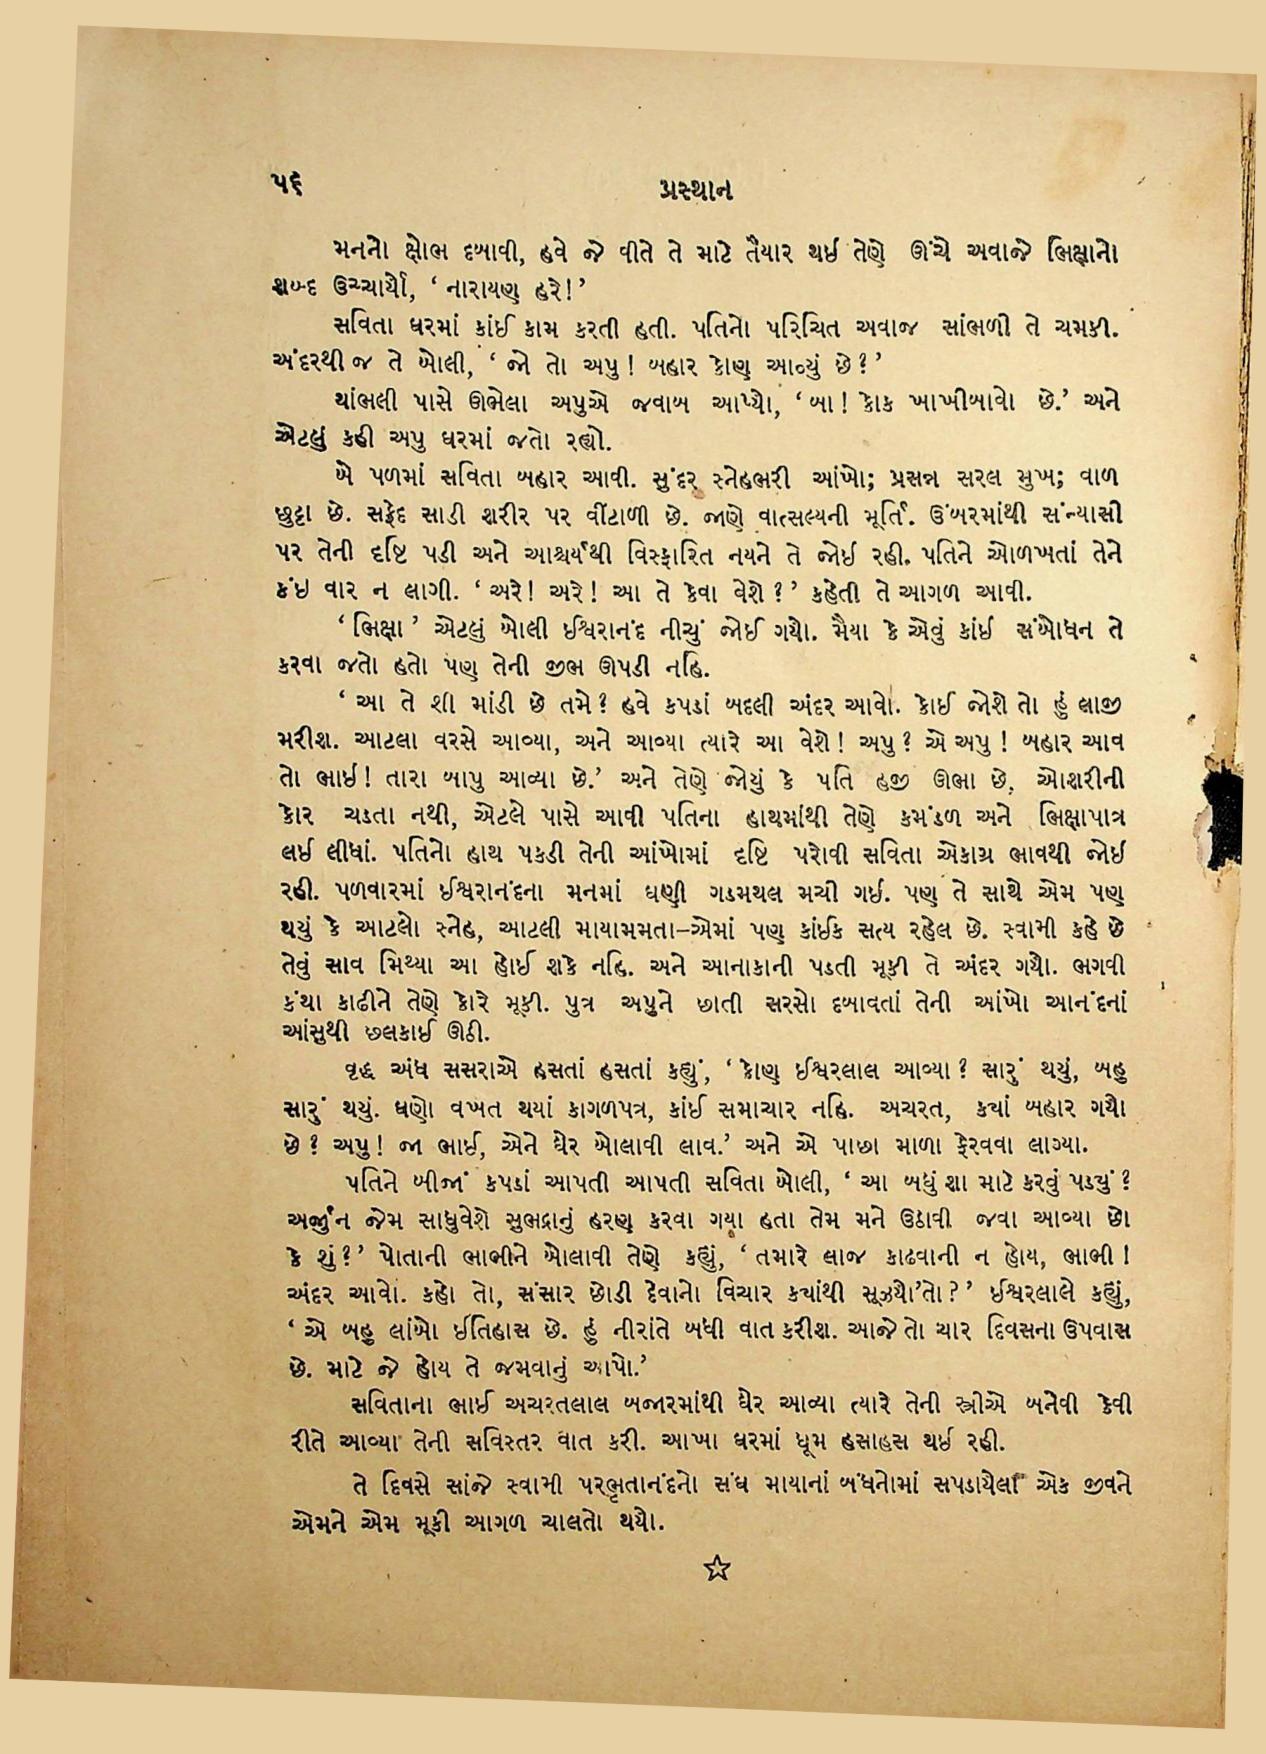 ૫૬
પ્રસ્થાન
મનનો ક્ષોભ દબાવી, હવે જે વીતે તે માટે તૈયાર થઈ તેણે ઊંચે અવાજે ભિક્ષાનો
શબ્દ ઉચ્ચાર્યો, ‘ નારાયણ હરે!’
સવિતા ઘરમાં કાંઈ કામ કરતી હતી. પતિનો પરિચિત અવાજ સાંભળી તે ચમકી.
અંદરથી જ તે બોલી, ‘ જો તો અપુ! બહાર કોણ આવ્યું છે?’
થાંભલી પાસે ઊભેલા અપુએ જવાબ આપ્યો, ‘બા! કોક ખાખીબાવો છે.’ અને
એટલું કહી અપુ ઘરમાં જતો રહ્યો.
બે પળમાં સવિતા બહાર આવી. સુંદર સ્નેહભરી આંખો; પ્રસન્ન સરલ મુખ; વાળ
છુટ્ટા છે. સફેદ સાડી શરીર પર વીંટાળી છે. જાણે વાત્સલ્યની મૂર્તિ. ઉંબરમાંથી સંન્યાસી
પર તેની દૃષ્ટિ પડી અને આશ્ચર્યથી વિસ્ફારિત નયને તે જોઈ રહી. પતિને ઓળખતાં તેને
કંઇ વાર ન લાગી. ‘ અરે! અરે! આ તે કેવા વેશે?’ કહેતી તે આગળ આવી.
‘ ભિક્ષા ’ એટલું બોલી ઈશ્વરાનંદ નીચું જોઈ ગયો. મૈયા કે એવું કાંઇ સંબોધન તે
કરવા જતો હતો પણ તેની જીભ ઊપડી નહિ.
‘ આ તે શી માંડી છે તમે? હવે કપડાં બદલી અંદર આવો. કોઈ જોશે તો હું લાજી
મરીશ. આટલા વરસે આવ્યા, અને આવ્યા ત્યારે આ વેશે! અપુ? એ અપુ! બહાર આવ
તો ભાઈ! તારા બાપુ આવ્યા છે.’ અને તેણે જોયું કે પતિ હજી ઊભા છે, ઓશરીની
કોર ચડતા નથી, એટલે પાસે આવી પતિના હાથમાંથી તેણે કમંડળ અને ભિક્ષાપાત્ર
લઇ લીધાં. પતિનો હાથ પકડી તેની આંખોમાં દૃષ્ટિ પરોવી સવિતા એકાગ્ર ભાવથી જોઇ
રહી. પળવારમાં ઈશ્વરાનંદના મનમાં ઘણી ગડમથલ મચી ગઇ. પણ તે સાથે એમ પણ
થયું કે આટલો સ્નેહ, આટલી માયામમતા–એમાં પણ કાંઈક સત્ય રહેલ છે. સ્વામી કહે છે
તેવું સાવ મિથ્યા આ હોઈ શકે નહિ. અને આનાકાની પડતી મૂકી તે અંદર ગયો. ભગવી
કંથા કાઢીને તેણે કોરે મૂકી. પુત્ર અપુને છાતી સરસો દબાવતાં તેની આંખો આનંદનાં
આંસુથી છલકાઈ ઊઠી.
વૃદ્ધ અંધ સસરાએ હસતાં હસતાં કહ્યું, ‘ કોણ ઈશ્વરલાલ આવ્યા? સારું થયું, બહુ
સારું થયું. ઘણો વખત થયાં કાગળપત્ર, કાંઈ સમાચાર નહિ. અચરત, ક્યાં બહાર ગયો
છે? અપુ! જા ભાઈ, એને ઘેર બોલાવી લાવ.’ અને એ પાછા માળા ફેરવવા લાગ્યા.
પતિને બીજાં કપડાં આપતી આપતી સવિતા બોલી, ‘ આ બધું શા માટે કરવું પડ્યું?
અર્જુન જેમ સાધુવેશે સુભદ્રાનું હરણ કરવા ગયા હતા તેમ મને ઉઠાવી જવા આવ્યા છો
કે શું?’ પોતાની ભાભીને બોલાવી તેણે કહ્યું, ‘ તમારે લાજ કાઢવાની ન હોય, ભાભી!
અંદર આવો. કહો તો, સંસાર છોડી દેવાનો વિચાર ક્યાંથી સૂઝ્યો’તો?’ ઈશ્વરલાલે કહ્યું,
‘ એ બહુ લાંબો ઇતિહાસ છે. હું નીરાંતે બધી વાત કરીશ. આજે તો ચાર દિવસના ઉપવાસ
છે. માટે જે હોય તે જમવાનું આપો.’
સવિતાના ભાઈ અચરતલાલ બજારમાંથી ઘેર આવ્યા ત્યારે તેની સ્ત્રીએ બનેવી કેવી
રીતે આવ્યા તેની સવિસ્તર વાત કરી. આખા ઘરમાં ધૂમ હસાહસ થઈ રહી.
તે દિવસે સાંજે સ્વામી પરભૃતાનંદનો સંઘ માયાનાં બંધનોમાં સપડાયેલા એક જીવને
એમને એમ મૂકી આગળ ચાલતો થયો.